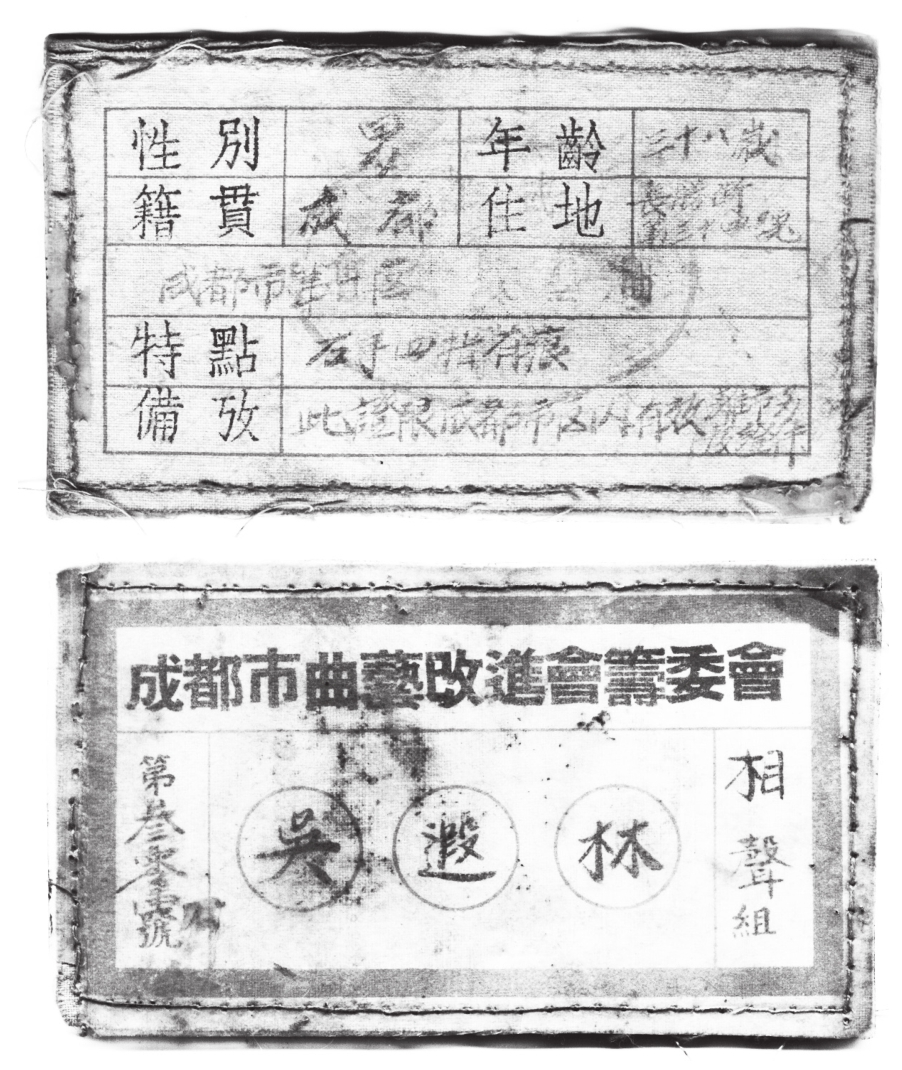 性別 男 年齡 三十八歲
籍貫 成都 住地 長勝街
第三十四號
成都市
特點 左手四指有痕
備攷 此證限成都市區內有效
成都市曲藝改進會籌委會
第叁零壹號
吳遐林
相聲組